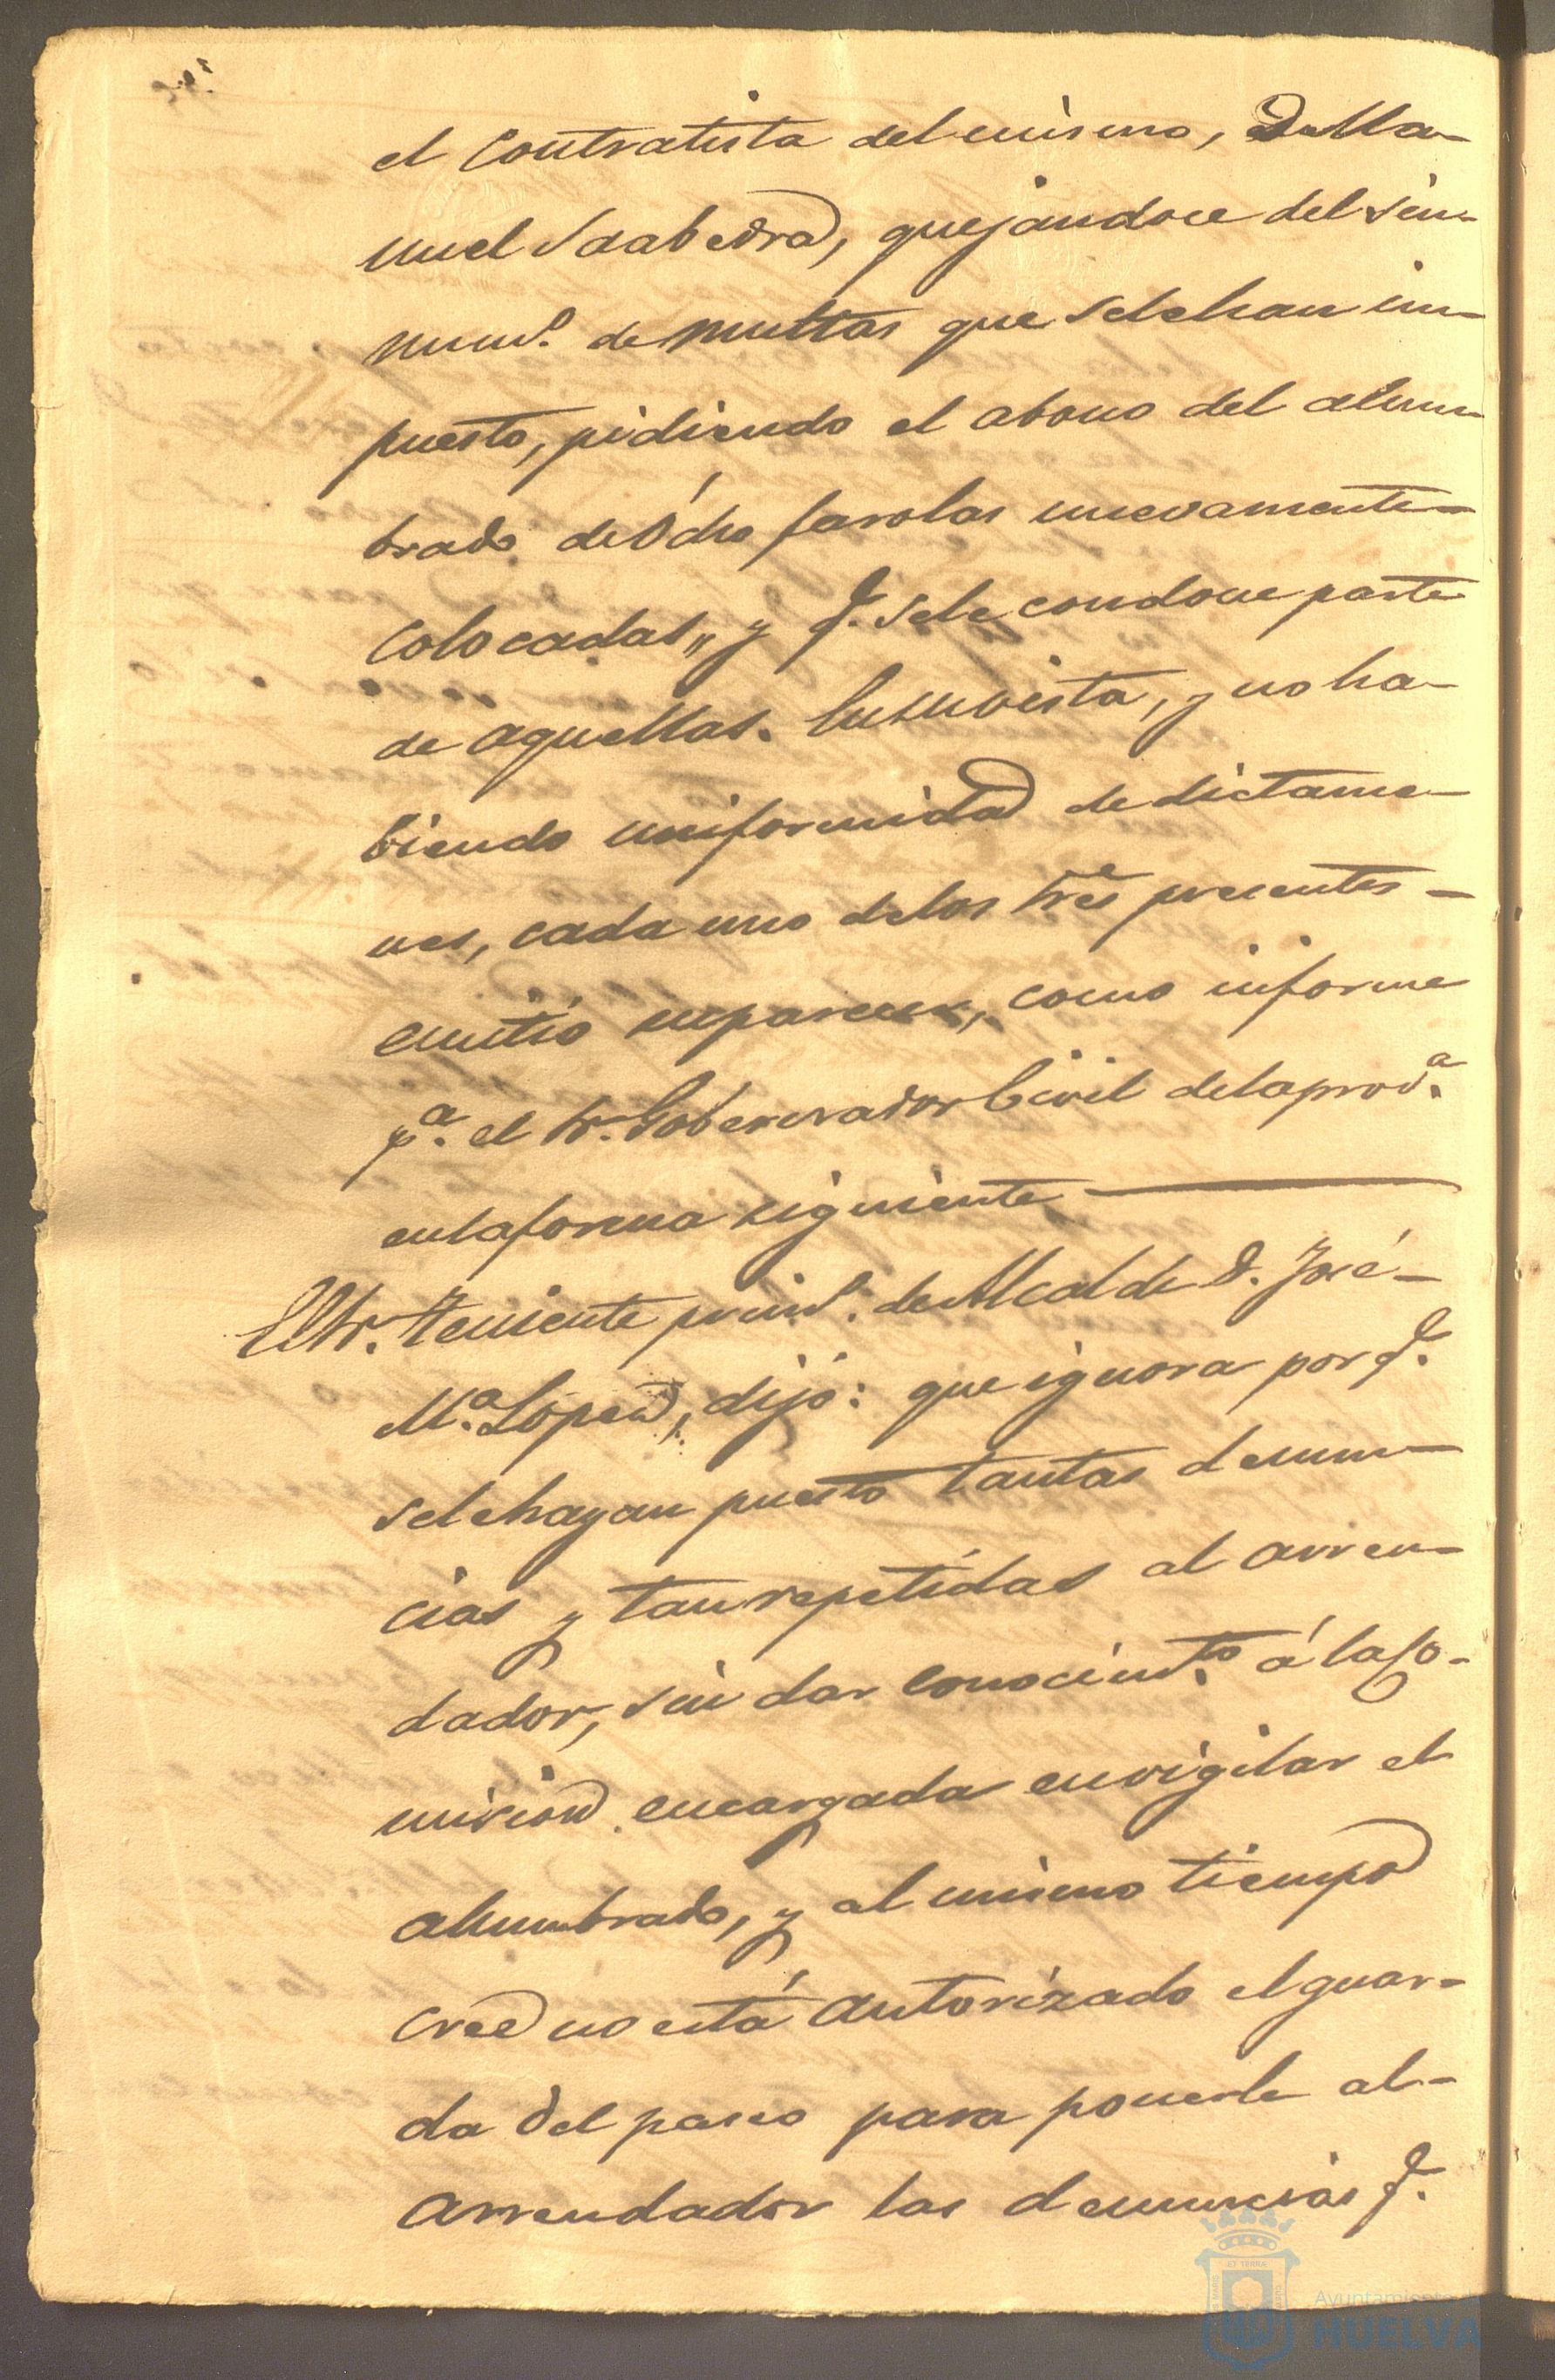 el contratista del mismo, D. Ma-
nuel Saabedra, quejandoce del sin-
num.o de multas que sele han im-
puesto, pidiendo el abono del alum-
brado de Ócho farolas nuevamente
colocadas,, y q.e sele condone parte
de aquellas. En su vista, y no ha-
biendo uniformidad de dictame-
nes, cada uno delos tres precentes
emitió su parecer, como informe
p.a el Sr. Gobernador Civil dela prov.a
en la forma siguiente
El Sr. Teniente prim.o de Alcalde D. José
M.a Lopez, dijo: que ignora por q.e
sele hayan puesto tantas denun-
cias y tan repetidas al arren-
dador, sin dar conocim.to á la Co-
mision encargada en vigilar el
alumbrado, y al mismo tiempo
cree no está autorizado el guar-
da del paseo para ponerle al
arrendador las denuncias q.e
Ayuntamiento de
HUELVA